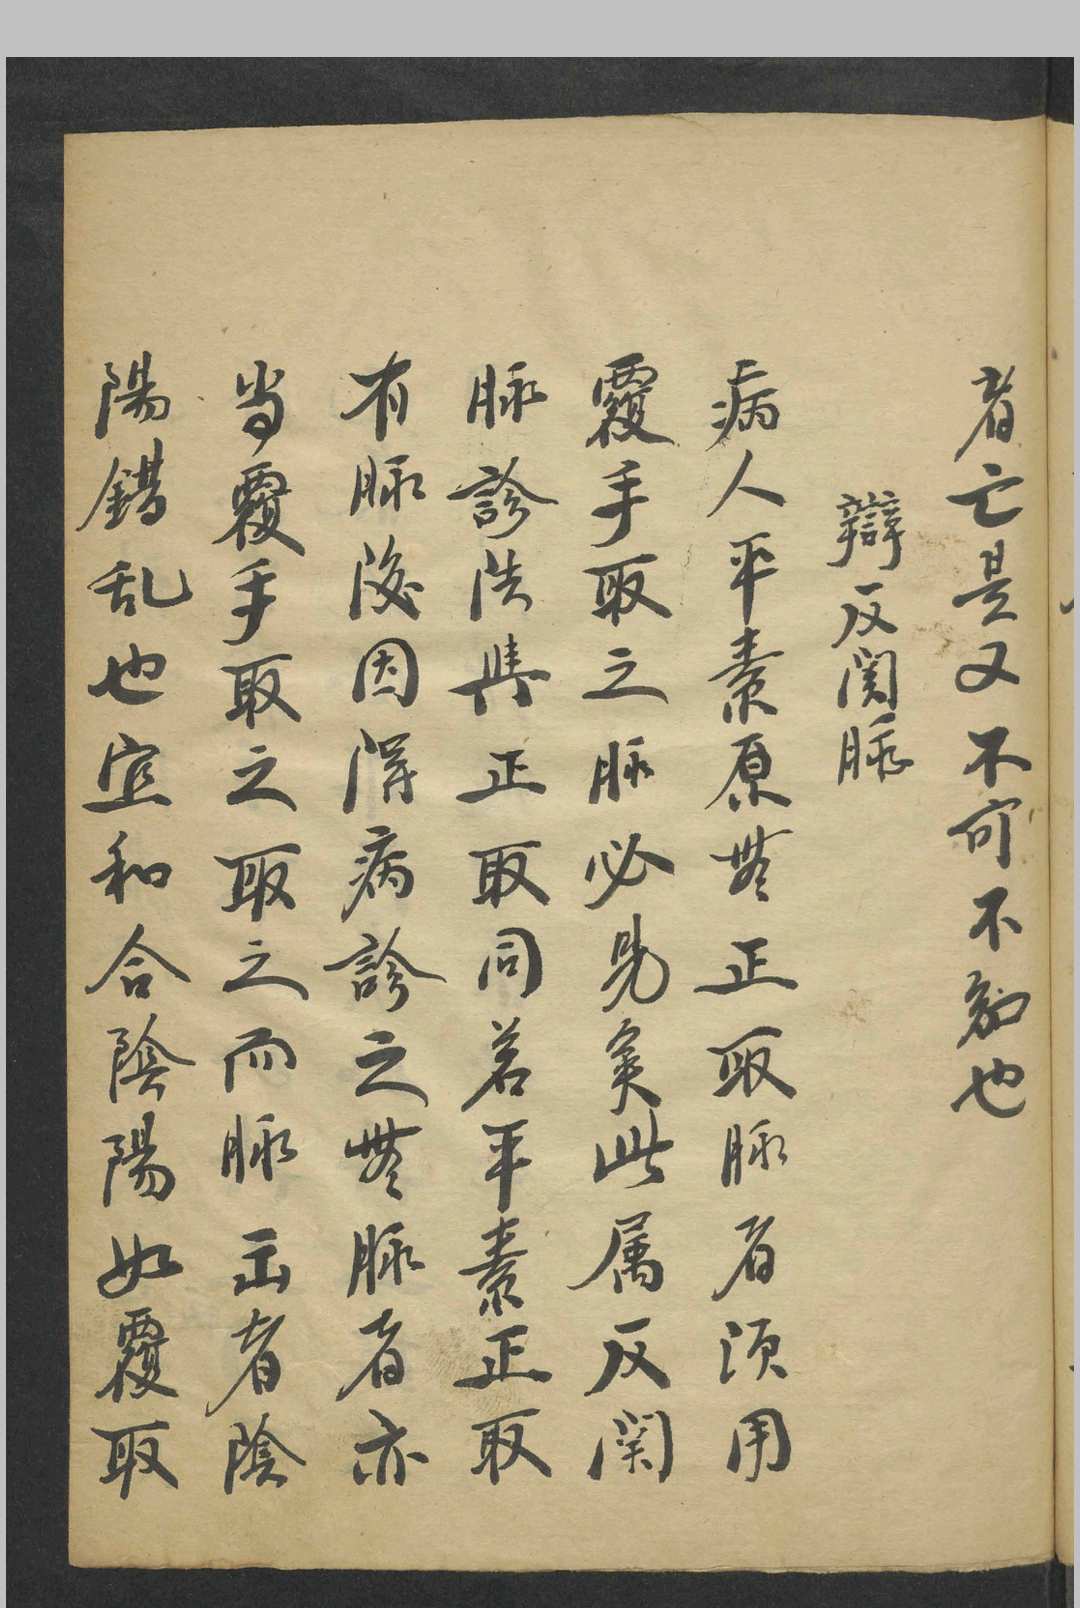 者亡是又不可不知也
辯反関脉
病人平素原無正取脉者須用
覆手取之脉必見矣此属反関
脉診法與正取同若平素正取
有脉後因得病診之無脉者亦
当覆手取之取之而脉出者陰
陽錯乱也宜和合陰陽如覆取